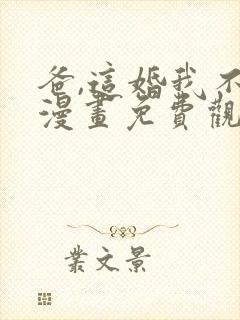 爸,這婚我不
漫畫免費觀
業文景